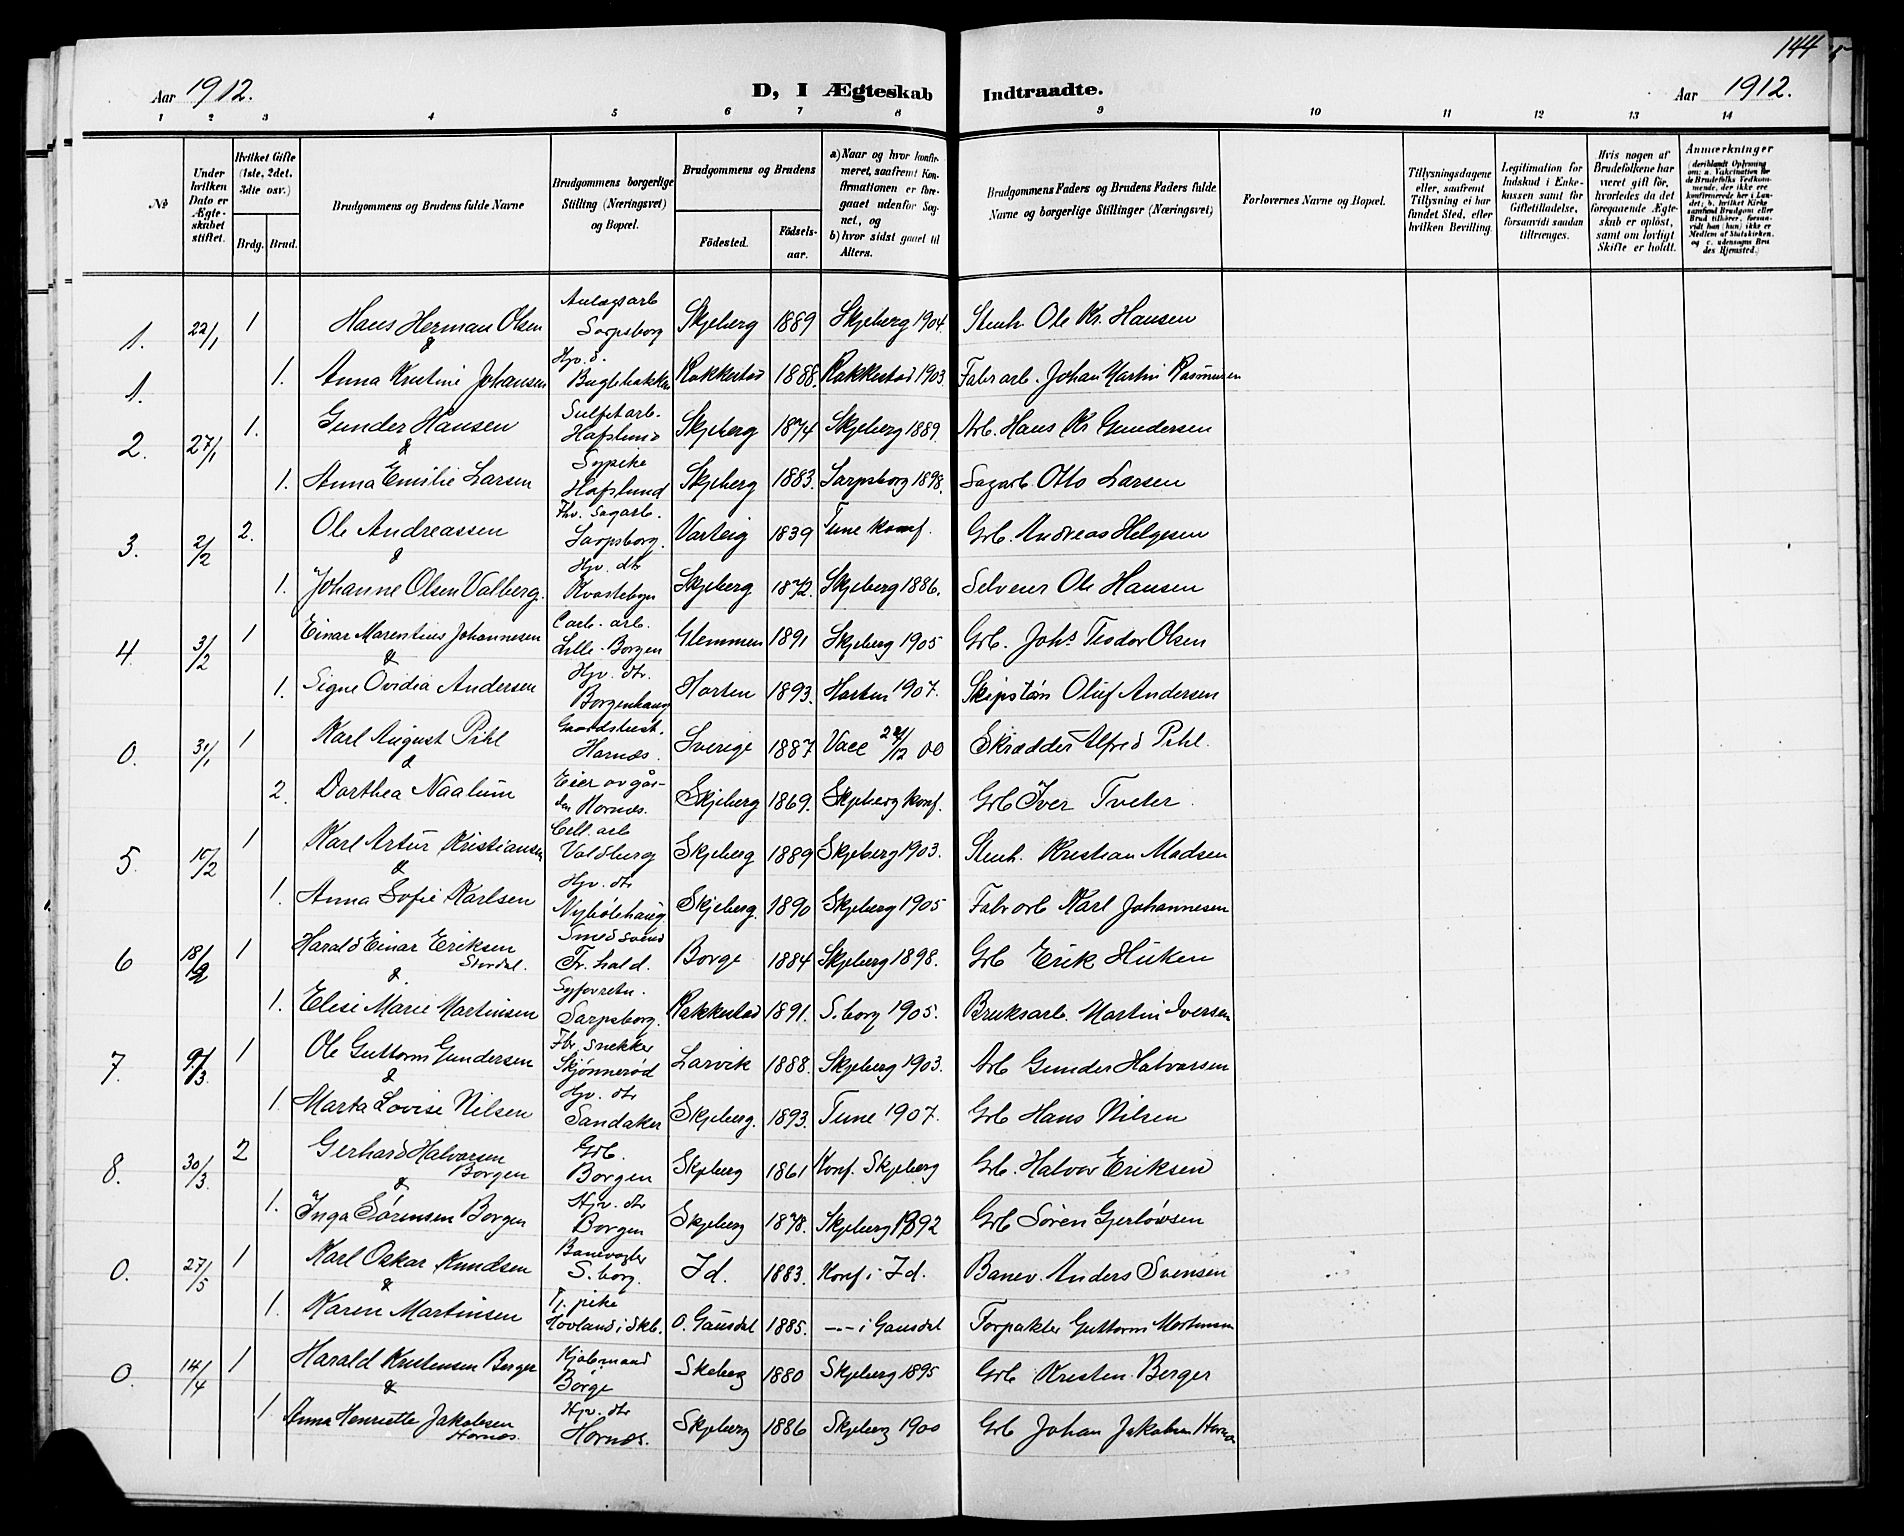 144
Aar 1912.
D, I Ægteskab Indtraadte.
Aar 1912.
1 2 3 4 5 6 7 8 9 10 11 12 13 14
No
Under hvilken Dato er Ægteskabet stiftet.
Hvilket Gifte (1ste, 2det, 3die osv.)
Brdg. Brud.
Brudgommens og Brudens fulde Navne
Brudgommens borgerlige Stilling (Næringsvei) og Bopæl.
Brudgommens og Brudens
Födested. Födsels-aar.
a) Naar og hvor konfirmeret, saafremt Konfirmationen er foregaaet udenfor Sognet, og
b) hvor sidst gaaet til Alters.
Brudgommens Faders og Brudens Faders fulde Navne og borgerlige Stillinger (Næringsvei)
Forlovernes Navne og Bopæl.
Tillysningsdagene eller, saafremt Tillysning ei har fundet Sted, efter hvilken Bevilling.
Legitimation for Indskud i Enkekassen samt for Giftetilladelse, forsaavidt saadan tiltrænges.
Hvis nogen af Brudefolkene har været gift för, hvorledes da det foregaaende Ægteskab er oplöst, samt om lovligt Skifte er holdt.
Anmærkninger
(deriblandt Oplysning om: a. Vaccination for de Brudefolks Vedkommende, der ikke ere konfirmerede her i Landet; b. hvilket Kirkesamfund Brudgom eller Brud tilhörer, forsaavidt han (hun) ikke er Medlem af Statskirken, og c. udensogns Brudes Hjemsted.)
1. 22/1 1 Hans Herman Olsen Anlægsarb Sarpsborg Skjeberg 1889 Skjeberg 1904. Stenh. Ole Kr. Hansen
&
1. 1. Anna Kristine Johansen Hjv. d. Skjeberg Rakkestad 1888. Rakkestad 1903. Fabr arb. Johan Martin Rasmussen
2. 27/1 1. Gunder Hansen Sulfitarb. Hafslund Skjeberg 1874 Skjeberg 1889. Arb. Hans Kr Gundersen
&
1. Anna Emilie Larsen Sypike Hafslund Skjeberg 1883. Sarpsborg 1898. Sagarb. Otto Larsen
3. 2/2 2. Ole Andreassen Fhv. Sagarb. Sarpsborg. Varteig 1839 Tune konf. Grb. Andreas Helgesen
&
1. Johanne Olsen Valberg. Hjv. dtr Kvastebyn Skjeberg 1872. Skjeberg 1886. Selveier Ole Hansen
4. 3/2 1 Einar Marentius Johannesen Carb. arb. Lille-Borgen Glemmen 1891 Skjeberg 1905 Grb. Johs Teodor Olsen
&
1. Signe Ovidia Andersen Hjv. dtr. Borgenhaug Horten 1893. Horten 1907. Skipstøm Oluf Andersen
0. 31/1 1 Karl August Pihl Gaardsbest. Hornæs. Sverige 1887 Vace 22/12 00 Skrædder Alfred Pihl.
&
2. Dorthea Naalum Eier av gården Hornæs. Skjeberg 1869. Skjeberg konf. Grb Iver Tveter.
5. 10/2 1 Karl Artur Kristiansen Cell. arb Valdberg Skjeberg 1889 Skjeberg 1903. Stenh. Kristian Madsen
&
1. Anna Sofie Karlsen Hjv. dtr Nybølehaug Skjeberg. 1890 Skjeberg 1905 Fabr arb Karl Johannesen
6 18/2 1 Harald Einar Eriksen Stordal. Smedsvend Fr. hald. Borge 1884 Skjeberg 1898. Grb Erik Huken
&
1. Elise Marie Martinsen Syforretn. Sarpsborg. Rakkestad 1891. S. borg 1905. Bruksarb. Martin Iversen
7. 9/3. 1 Ole Guttorm Gundersen Fbr. snekker Skjønnerød Larvik 1888. Skjeberg 1903. Arb Gunder Halvorsen
&
1. Marta Lovise Nilsen Hjv. dtr Sandaker Skjeberg. 1893. Tune 1907. Grb Hans Nilsen
8. 30/3. 2 Gerhard Halvorsen Borgen Grb. Borgen Skjeberg 1861 Konf. Skjeberg Grb. Halvor Eriksen
&
1. Inga Sørensen Borgen Hjv. dtr Borgen Skjeberg 1878. Skjeberg 1892 Grb Søren Gjerløvsen
0. 27/5 1 Karl Oskar Knudsen Banevogter S. borg. Id. 1883. Konf i Id. Banev. Anders Svensen
&
1. Karen Martinsen Tj. pike Hovland i Skb. O. Gausdal 1885. —"— i Gausdal Forpakter Guttorm Martinsen
0. 14/4 1 Harald Kristensen Berger Kjøbmand Borge Skeberg 1880 Skjeberg 1895 Grb Kristen Berger
&
1 Anna Henriette Jakobsen Hornæs. Hjv. dtr Hornæs. Skjeberg 1886 Skjeberg 1900 Grb Johan Jakobsen Hornæs